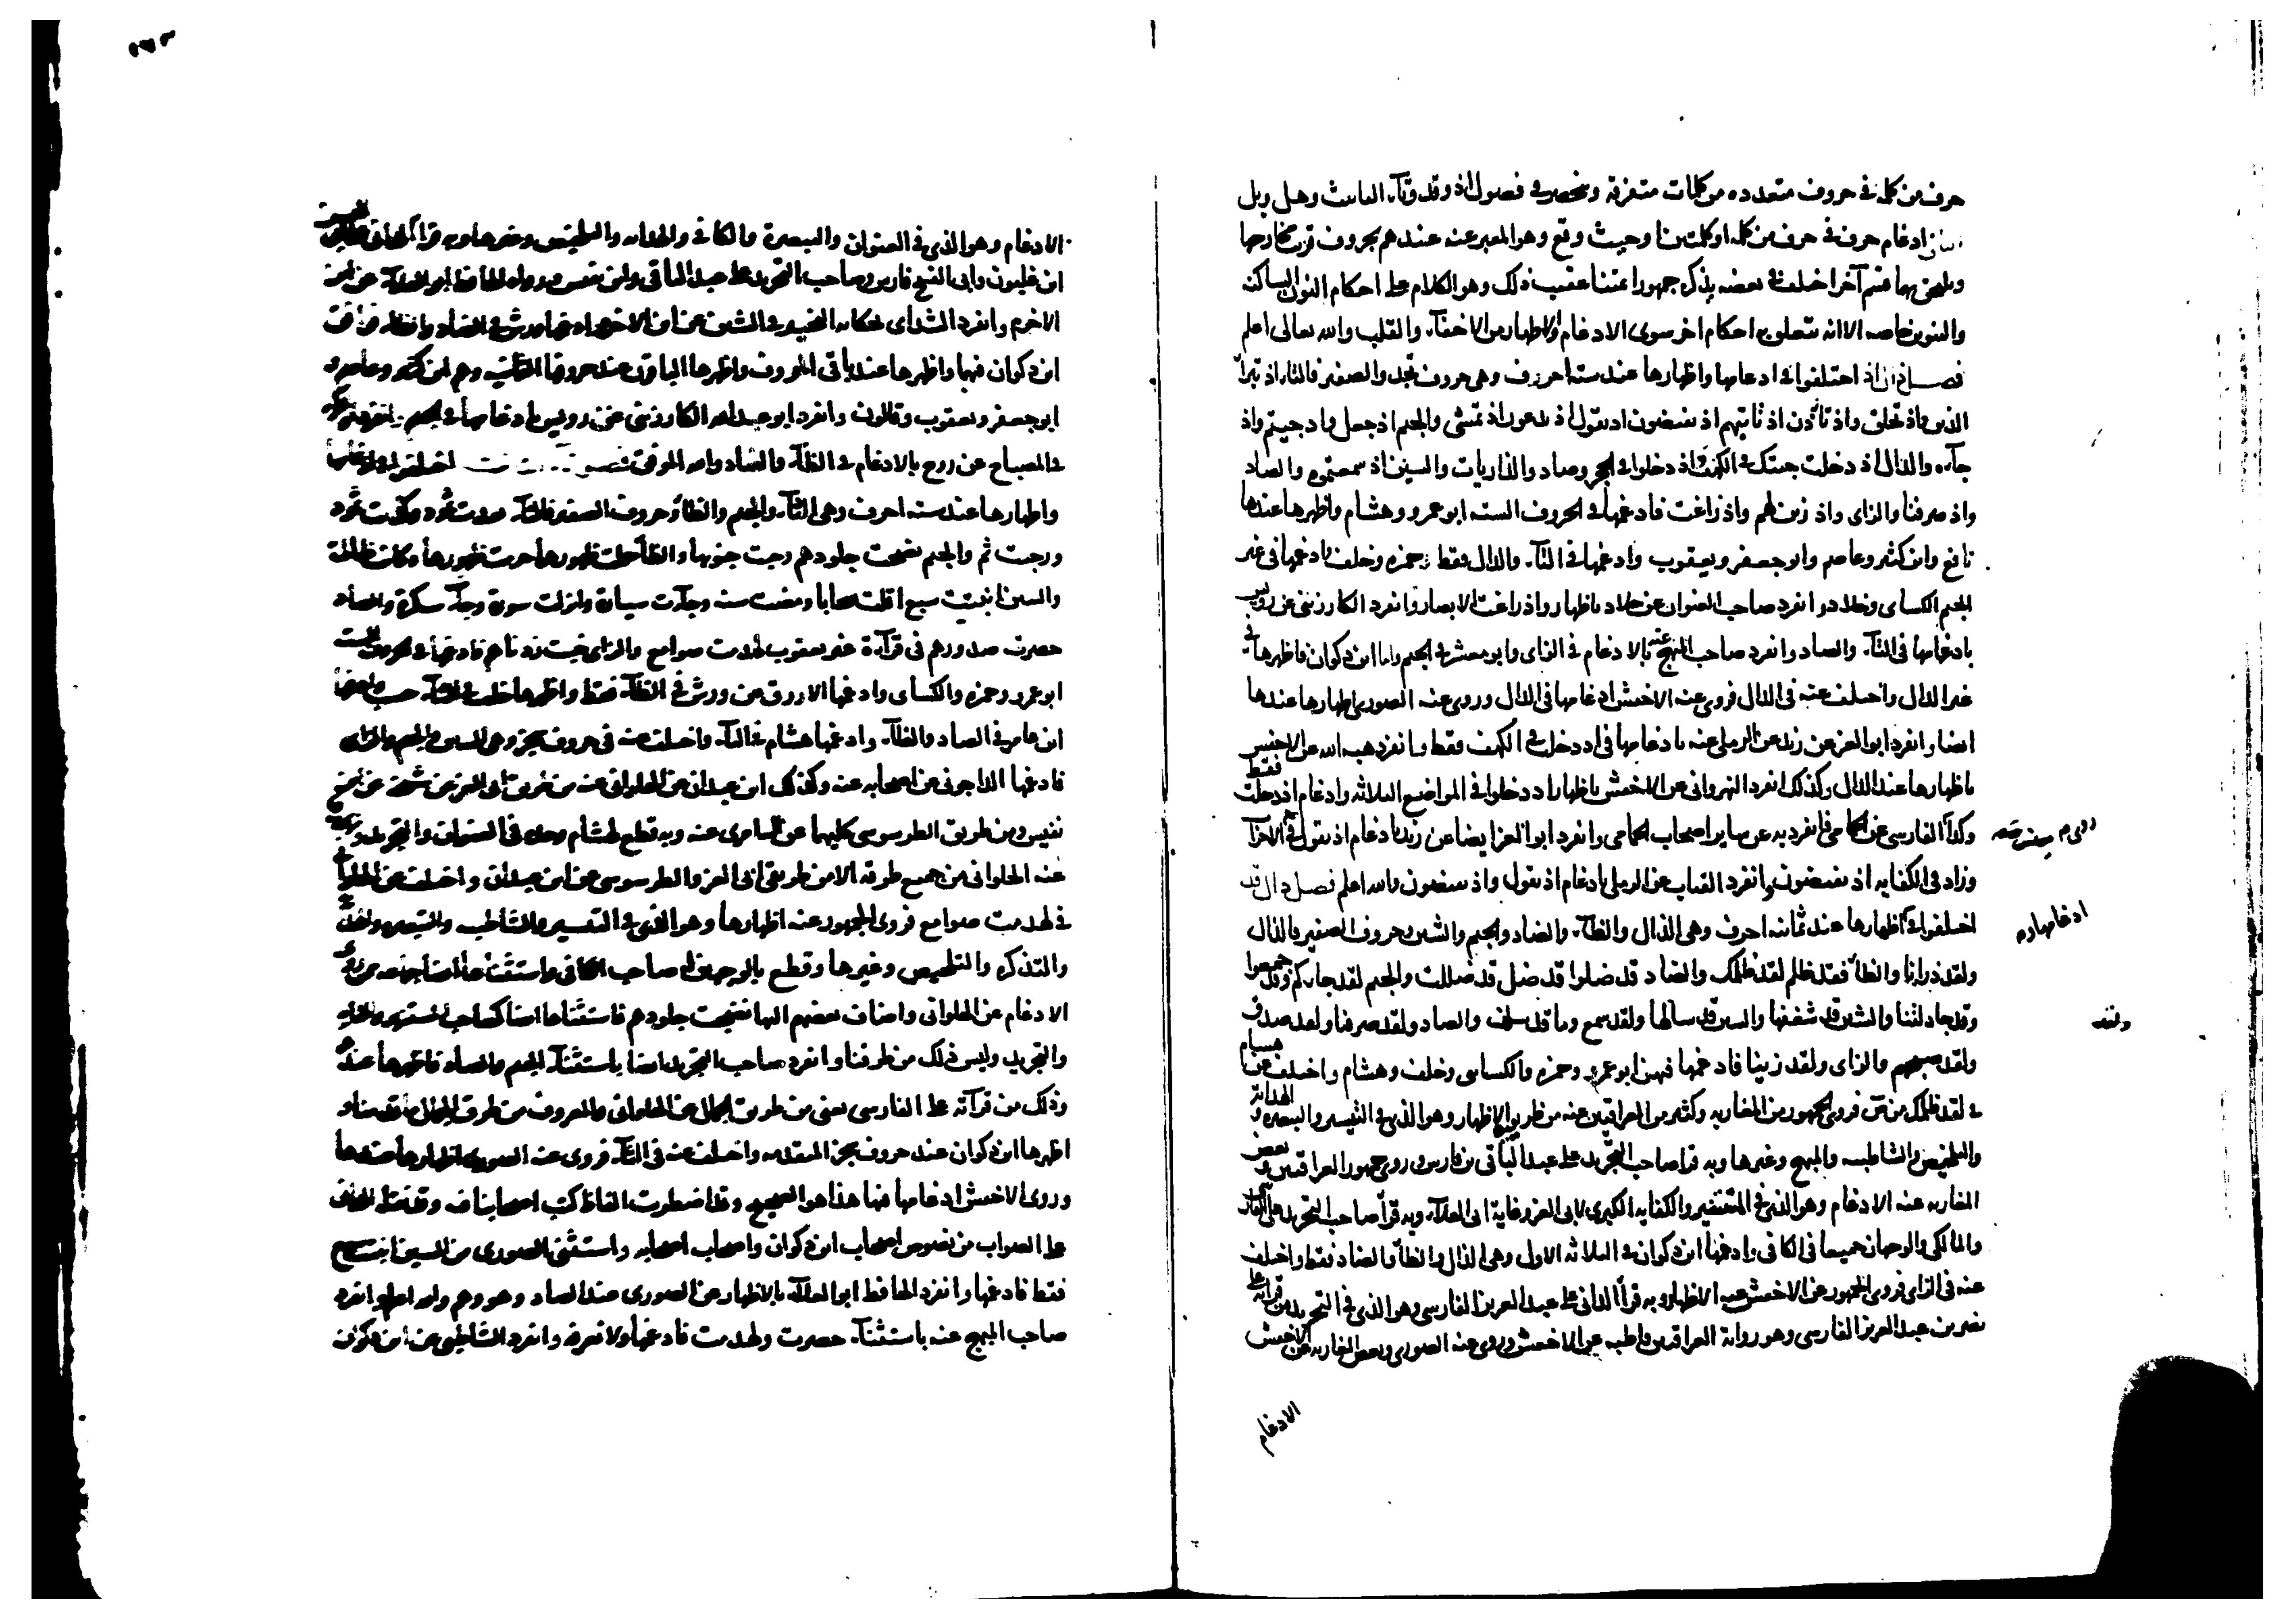 حرف من كلمة في حروف متعدده من كلمات متفرقة وينحصر في فصول اذ وقد وتآء التانيث وهل وبل
ادغام حرف في حرف من كلمة او كلمتين حيث وقع وهو المعبر عنه عندهم بحروف قربت مخارجها
ويلتحق بهما قسم آخر اختلف في بعضه يذكره جمهور ائمتنا عقيب ذلك وهو الكلام على احكام النون الساكنه
والتنوين خاصه الا انه يتعلق به احكام اخر سوى الادغام والاظهار من الاخفآء والقلب والله تعالى اعلم
فصل ذال اذ اختلفوا في ادغامها واظهارها عند ستة احرف وهي حروف تجد والصفير فالتاء اذ تبرأ
الذين واذ تخلق واذ تأذن اذ تاتيهم اذ تفيضون اذ تقول اذ تدعون اذ تمشي والجيم اذ جعل واذ جيتهم واذ
جآءه والدال اذ دخلت جنتك في الكهف واذ دخلوا في الحجر وصاد والذاريات والسين اذ سمعتموه والصاد
واذ صرفنا والزاى واذ زين لهم واذ زاغت فادغمها في الحروف الستة ابو عمرو وهشام واظهرها عندها
نافع وابن كثير وعاصم وابو جعفر ويعقوب وادغمها في التآء والدال فقط حمزه وخلف وادغمها في غير
الجيم الكساى وخلاد وانفرد صاحب العنوان عن خلاد باظهار واذ زاغت الابصار وانفرد الكارزيني عن رويس
بادغامها في التآء والصاد وانفرد صاحب المبهج عنه بالادغام في الزاى وابو معشر في الجيم واما ابن ذكوان فاظهرها في
غير الدال واختلف عنه في الدال فروى عنه الاخفش ادغامها في الدال وروى عنه الصورى اظهارها عندها
ايضا وانفرد ابو العز عن زيد عن الرملي عنه بادغامها في اذ دخلت في الكهف فقط وانفرد هبة الله عن الاخفش
باظهارها عند الدال وكذلك انفرد النهرواني عن الاخفش باظهار اذ دخلوا في المواضع الثلاثه وادغام اذ دخلت فقط
وكذا الفارسي عن الحمامي فانفرد به عن ساير اصحاب الحمامي وانفرد ابو العز ايضا عن زيد بادغام اذ تقول في الاحزاب
وزاد في الكفايه اذ تفيضون وانفرد القباب عن الرملي بادغام اذ تقول واذ تفيضون والله اعلم فصل دال قد
اختلفوا في اظهارها عند ثمانية احرف وهي الذال والظآء والضاد والجيم والشين وحروف الصفير فالذال
ولقد ذرانا والظآء فقد ظلم لقد ظلمك والضاد قد ضلوا قد ضل قد ضللت والجيم لقد جاءكم وقد جمعوا
وقد جادلتنا والشين قد شغفها والسين قد سالها ولقد سمع وما قد سلف والصاد ولقد صرفنا ولقد صدق
ولقد صبحهم والزاى ولقد زينا فادغمها فيهن ابو عمرو وحمزه والكساى وخلف وهشام واختلف عن هشام
في لقد ظلمك من ص فروى الجمهور من المغاربه وكثير من العراقيين عنه من طريقيه الاظهار وهو الذي في التيسير والتبصره والهدايه
والتلخيص والشاطبيه والمبهج وغيرها وبه قرا صاحب التجريد على عبد الباقي بن فارس وروى جمهور العراقيين وبعض
المغاربه عنه الادغام وهو الذي في المستنير والكفايه الكبرى لابي العز وغاية ابي العلآء وبه قرأ صاحب التجريد على الفارسي
والمالكي والوجهان جميعا في الكافي وادغمها ابن ذكوان في الثلاثه الاول وهي الذال والظآء والضاد فقط واختلف
عنه في الزاى فروى الجمهور عن الاخفش عنه الاظهار وبه قرأ الداني على عبد العزيز الفارسي وهو الذي في التجريد من قراءته على
نصر بن عبد العزيز الفارسي وهو رواية العراقيين قاطبه عن الاخفش وروى عنه الصورى وبعض المغاربه عن الاخفش
الادغام
ادغامها و
ولقد
الادغام وهو الذى في العنوان والتبصرة والكافي والهدايه والتلخيص وغيرها وبه قرا الداني على
ابن غلبون وابي الفتح فارس وصاحب التجريد على عبد الباقي وابن نفيس ورواه الحافظ ابو العلآء عن ابن
الاخرم وانفرد الشذاى بحكاية التخيير في الشين عن ابن الاخرم وادغمها ورش في الضاد والظاء ووافقه
ابن ذكوان فيهما واظهرها عند باقي الحروف واظهرها الباقون عند حروفها الثمانيه وهم ابن كثير وعاصم و
ابو جعفر ويعقوب وقالون وانفرد ابو عبد الله الكارزيني عن رويس بادغامها في الجيم
في المصباح عن روح بالادغام في الظآء والضاد والله الموفق فصل اختلفوا في ادغامها
واظهارها عند ستة احرف وهي الثآء والجيم والظآء وحروف الصفير فالثآء بعدت ثمود وكذبت ثمود
ورحبت ثم والجيم نضجت جلودهم وجبت جنوبها والظآء حملت ظهورها حرمت ظهورها وكانت ظالمة
والسين انبتت سبع اقلت سحابا ومضت سنت وجآءت سيارة وانزلت سورة وجآءت سكرة والصاد
حصرت صدورهم في قرآءة غير يعقوب لهدمت صوامع والزاى خبت زدناهم فادغمها في الحروف الستة
ابو عمرو وحمزه والكساى وادغمها الازرق عن ورش في الظآء فقط واظهرها خلف في الثآء حسب وادغمها
ابن عامر في الصاد والظآء وادغمها هشام في الثآء واختلف عنه في حروف سجز وهي السين والجيم والزاى
فادغمها الداجوني عن اصحابه عنه وكذلك ابن عبدان عن الحلواني عنه من طريق ابي العز عن شيخه عن ابن
نفيس ومن طريق الطرسوسي كليهما عن السامرى عنه وبه قطع لهشام وحده في العنوان والتجريد
عنه الحلواني من جميع طرقه الا من طريقي ابي العز والطرسوسي عن ابن عبدان واختلف عن الحلواني
في لهدمت صوامع فروى الجمهور عنه اظهارها وهو الذى في التيسير والشاطبيه والتبصره والهدايه
والتذكره والتلخيص وغيرها وقطع بالوجهين له صاحب الكافي واستثناها ايضا جماعه ممن روى
الادغام عن الحلواني واضاف بعضهم اليها نضجت جلودهم فاستثناها ايضا كصاحب المستنير والغايه
والتجريد وليس ذلك من طرقنا وانفرد صاحب التجريد ايضا باستثنآء الجيم والصاد فاظهرها عندهما
وذلك من قرآته على الفارسي يعني من طريق الجمال عن الحلواني والمعروف من طرق الجمال ما قدمناه و
اظهرها ابن ذكوان عند حروف سجز المتقدمه واختلف عنه في الثآء فروى عنه الصورى اظهارها عندها
وروى الاخفش ادغامها فيها هذا هو الصحيح وقد اضطربت الفاظ كتب اصحابنا فيه وقد نقلنا
على الصواب من نصوص اصحاب ابن ذكوان واصحاب اصحابه واستثنى الصورى من السين انبتت سبع
فقط فادغمها وانفرد الحافظ ابو العلآء بالاظهار عن الصورى عند الصاد وهو وهم والله اعلم وانفرد
صاحب المبهج عنه باستثنآء حصرت ولهدمت فادغمها ولا نعرفه وانفرد الشاطبي عن ابن ذكوان